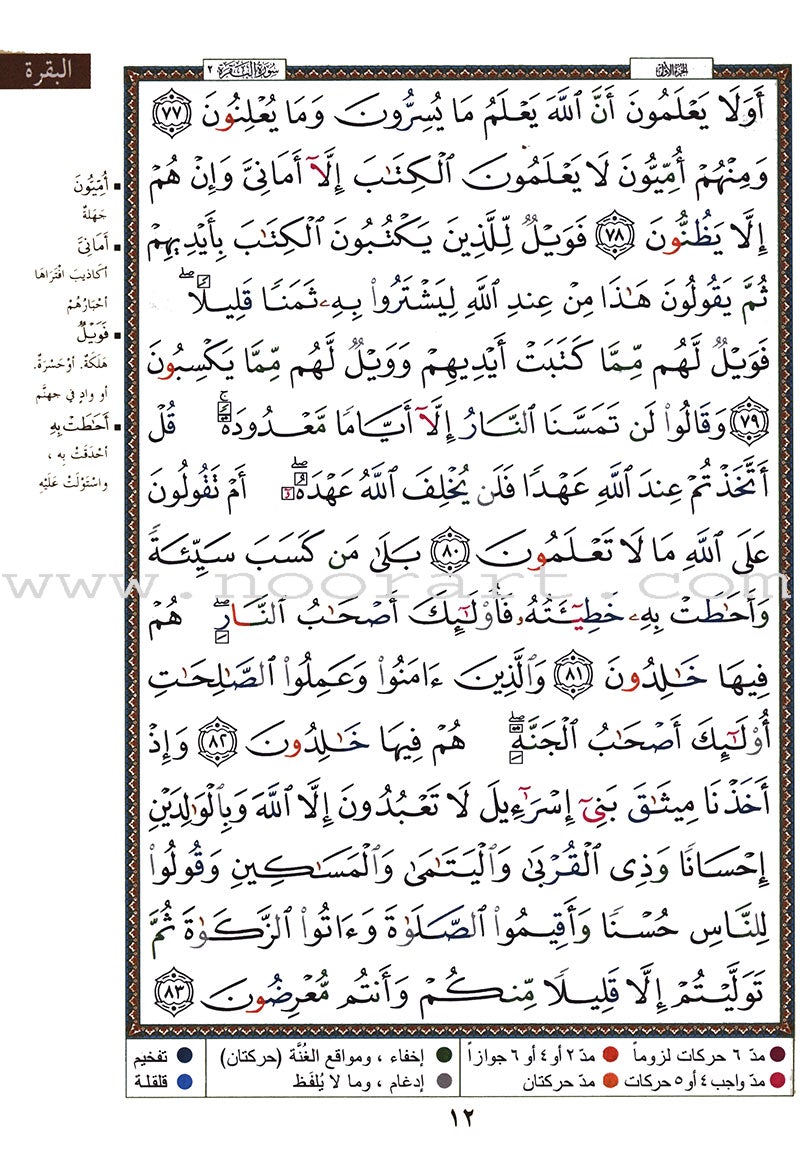 البقرة
سُورَةُ البَقَرَة ٢
الجزء الأول
أَوَلَا يَعْلَمُونَ أَنَّ ٱللَّهَ يَعْلَمُ مَا يُسِرُّونَ وَمَا يُعْلِنُونَ ٧٧
وَمِنْهُمْ أُمِّيُّونَ لَا يَعْلَمُونَ ٱلْكِتَٰبَ إِلَّآ أَمَانِىَّ وَإِنْ هُمْ
إِلَّا يَظُنُّونَ ٧٨ فَوَيْلٌ لِّلَّذِينَ يَكْتُبُونَ ٱلْكِتَٰبَ بِأَيْدِيهِمْ
ثُمَّ يَقُولُونَ هَٰذَا مِنْ عِندِ ٱللَّهِ لِيَشْتَرُوا۟ بِهِۦ ثَمَنًا قَلِيلًا ۖ
فَوَيْلٌ لَّهُم مِّمَّا كَتَبَتْ أَيْدِيهِمْ وَوَيْلٌ لَّهُم مِّمَّا يَكْسِبُونَ
٧٩ وَقَالُوا۟ لَن تَمَسَّنَا ٱلنَّارُ إِلَّآ أَيَّامًا مَّعْدُودَةً ۚ قُلْ
أَتَّخَذْتُمْ عِندَ ٱللَّهِ عَهْدًا فَلَن يُخْلِفَ ٱللَّهُ عَهْدَهُۥٓ ۖ أَمْ تَقُولُونَ
عَلَى ٱللَّهِ مَا لَا تَعْلَمُونَ ٨٠ بَلَىٰ مَن كَسَبَ سَيِّئَةً
وَأَحَٰطَتْ بِهِۦ خَطِيٓـَٔتُهُۥ فَأُو۟لَٰٓئِكَ أَصْحَٰبُ ٱلنَّارِ ۖ هُمْ
فِيهَا خَٰلِدُونَ ٨١ وَٱلَّذِينَ ءَامَنُوا۟ وَعَمِلُوا۟ ٱلصَّٰلِحَٰتِ
أُو۟لَٰٓئِكَ أَصْحَٰبُ ٱلْجَنَّةِ ۖ هُمْ فِيهَا خَٰلِدُونَ ٨٢ وَإِذْ
أَخَذْنَا مِيثَٰقَ بَنِىٓ إِسْرَٰٓءِيلَ لَا تَعْبُدُونَ إِلَّا ٱللَّهَ وَبِٱلْوَٰلِدَيْنِ
إِحْسَانًا وَذِى ٱلْقُرْبَىٰ وَٱلْيَتَٰمَىٰ وَٱلْمَسَٰكِينِ وَقُولُوا۟
لِلنَّاسِ حُسْنًا وَأَقِيمُوا۟ ٱلصَّلَوٰةَ وَءَاتُوا۟ ٱلزَّكَوٰةَ ثُمَّ
تَوَلَّيْتُمْ إِلَّا قَلِيلًا مِّنكُمْ وَأَنتُم مُّعْرِضُونَ ٨٣
أُمِّيُّونَ
جَهَلَةٌ
أَمَانِىَّ
أكاذيبَ افْتَرَاهَا
أحْبَارُهُمْ
فَوَيْلٌ
هَلَكَةٌ. أَوْ حَسْرَةٌ.
أو وادٍ في جهنَّم
أَحَٰطَتْ بِهِ
أحْدَقَتْ بِه ،
واسْتَوْلَتْ عَلَيْهِ
مدّ ٦ حركات لزوماً
مدّ ٢ أو ٤ أو ٦ جوازاً
إخفاء ، ومواقع الغُنَّة (حركتان)
تفخيم
مدّ واجب ٤ أو ٥ حركات
مدّ حركتان
إدغام ، وما لا يُلفَظ
قلقلة
١٢
www.noorart.com